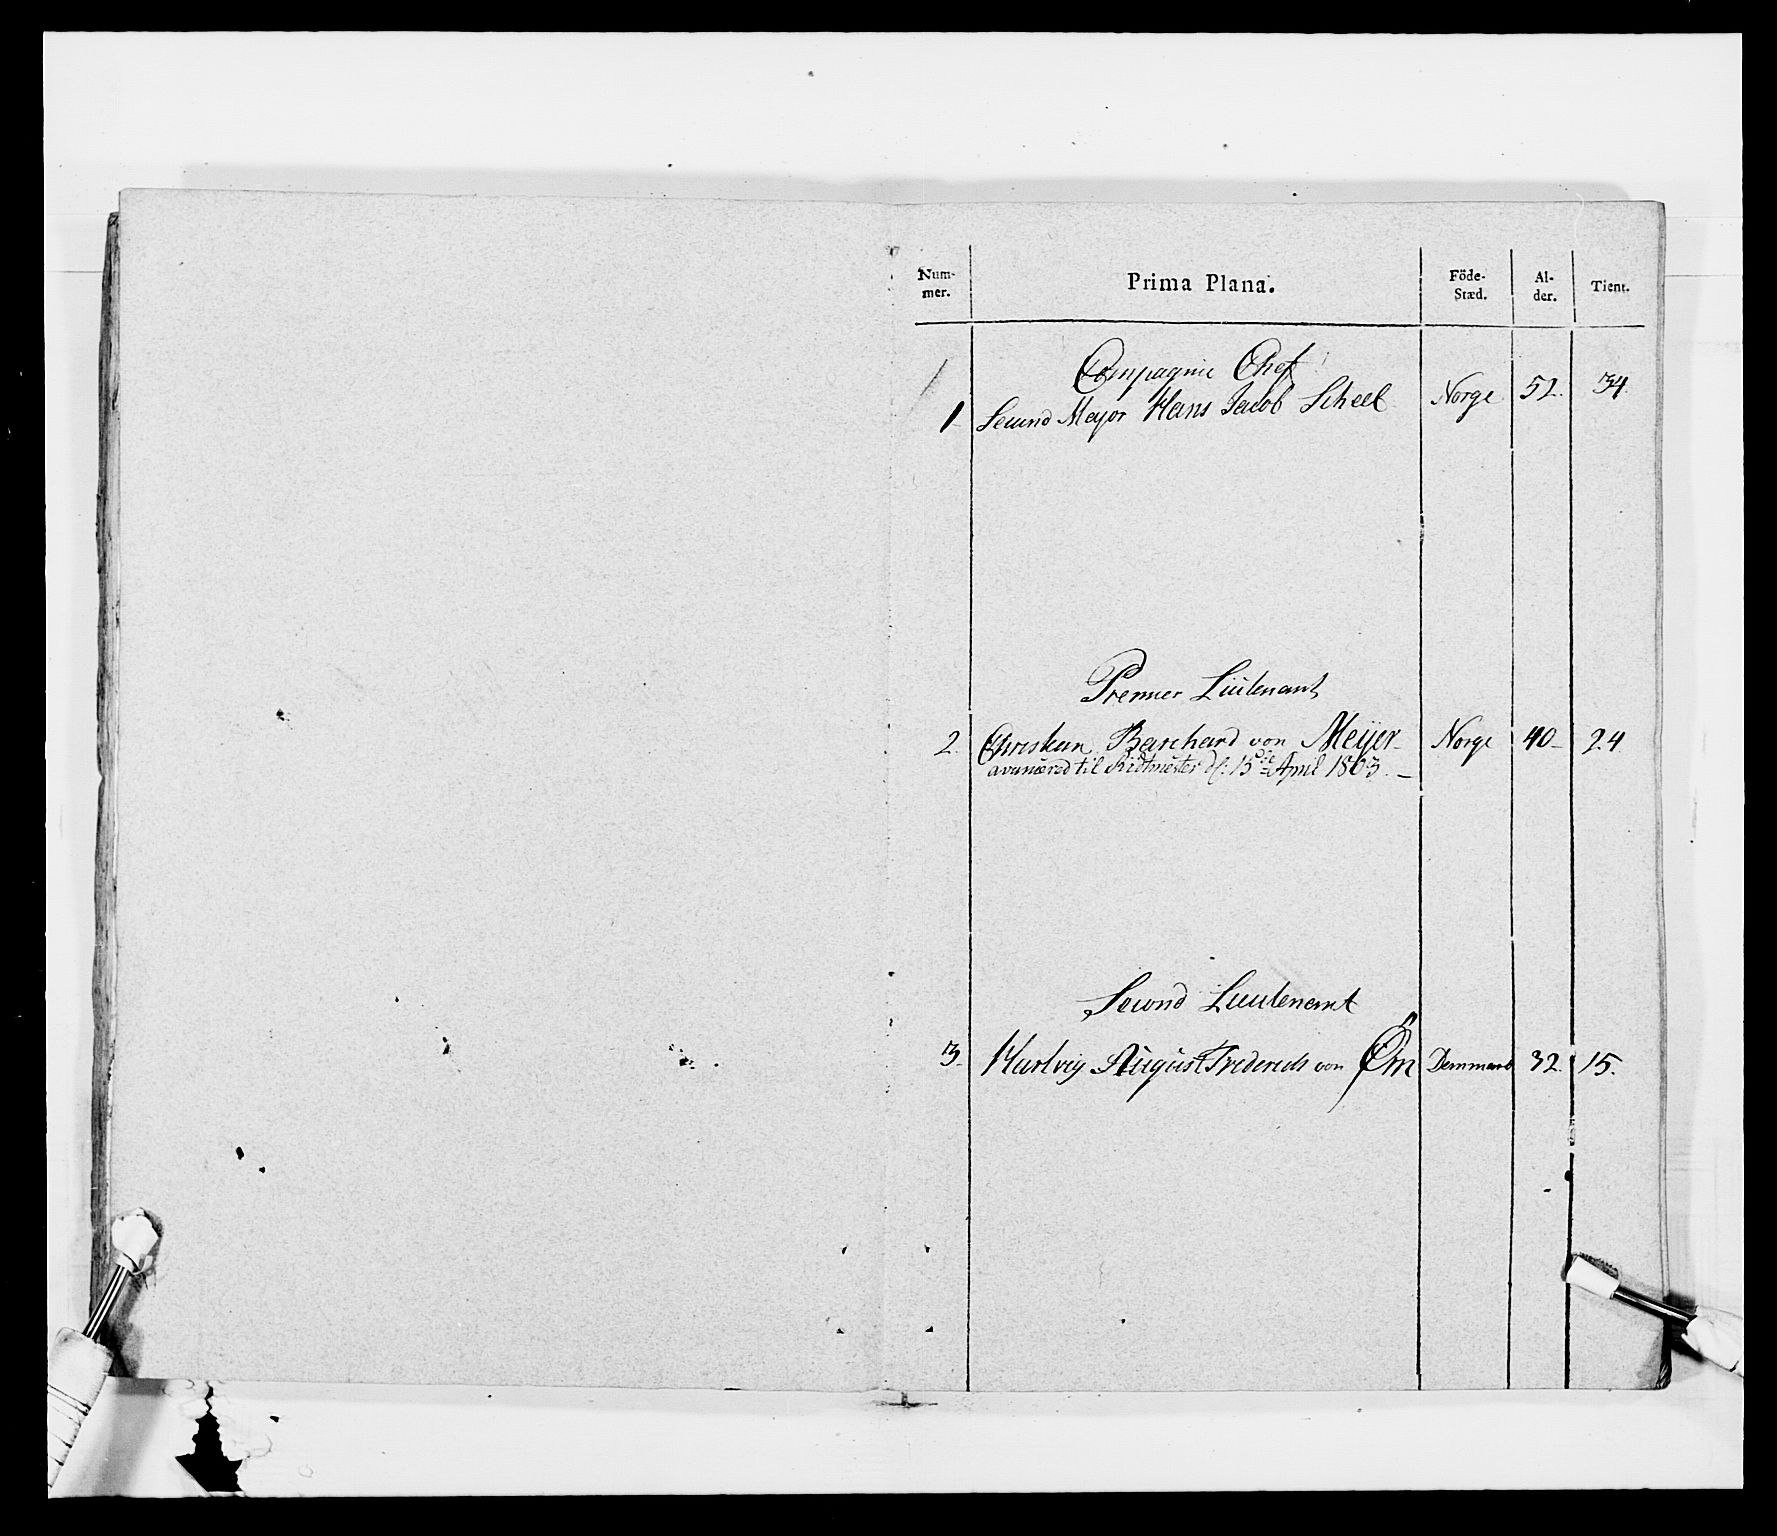 Num-
mer.
Prima Plana.
Föde-
Stæd.
Al-
der.
Tient.
Compagnie Chef
1 Secund Major Hans Jacob Scheel Norge 52. 34
Premier Lieutenant
2. Christian Barchard von Meyer Norge 40- 24
avancered til Ridtmester d: 15de April 1803. -
Secund Lieutenant
3. Hartvig August Frederich von Öm Danmark 32. 15.